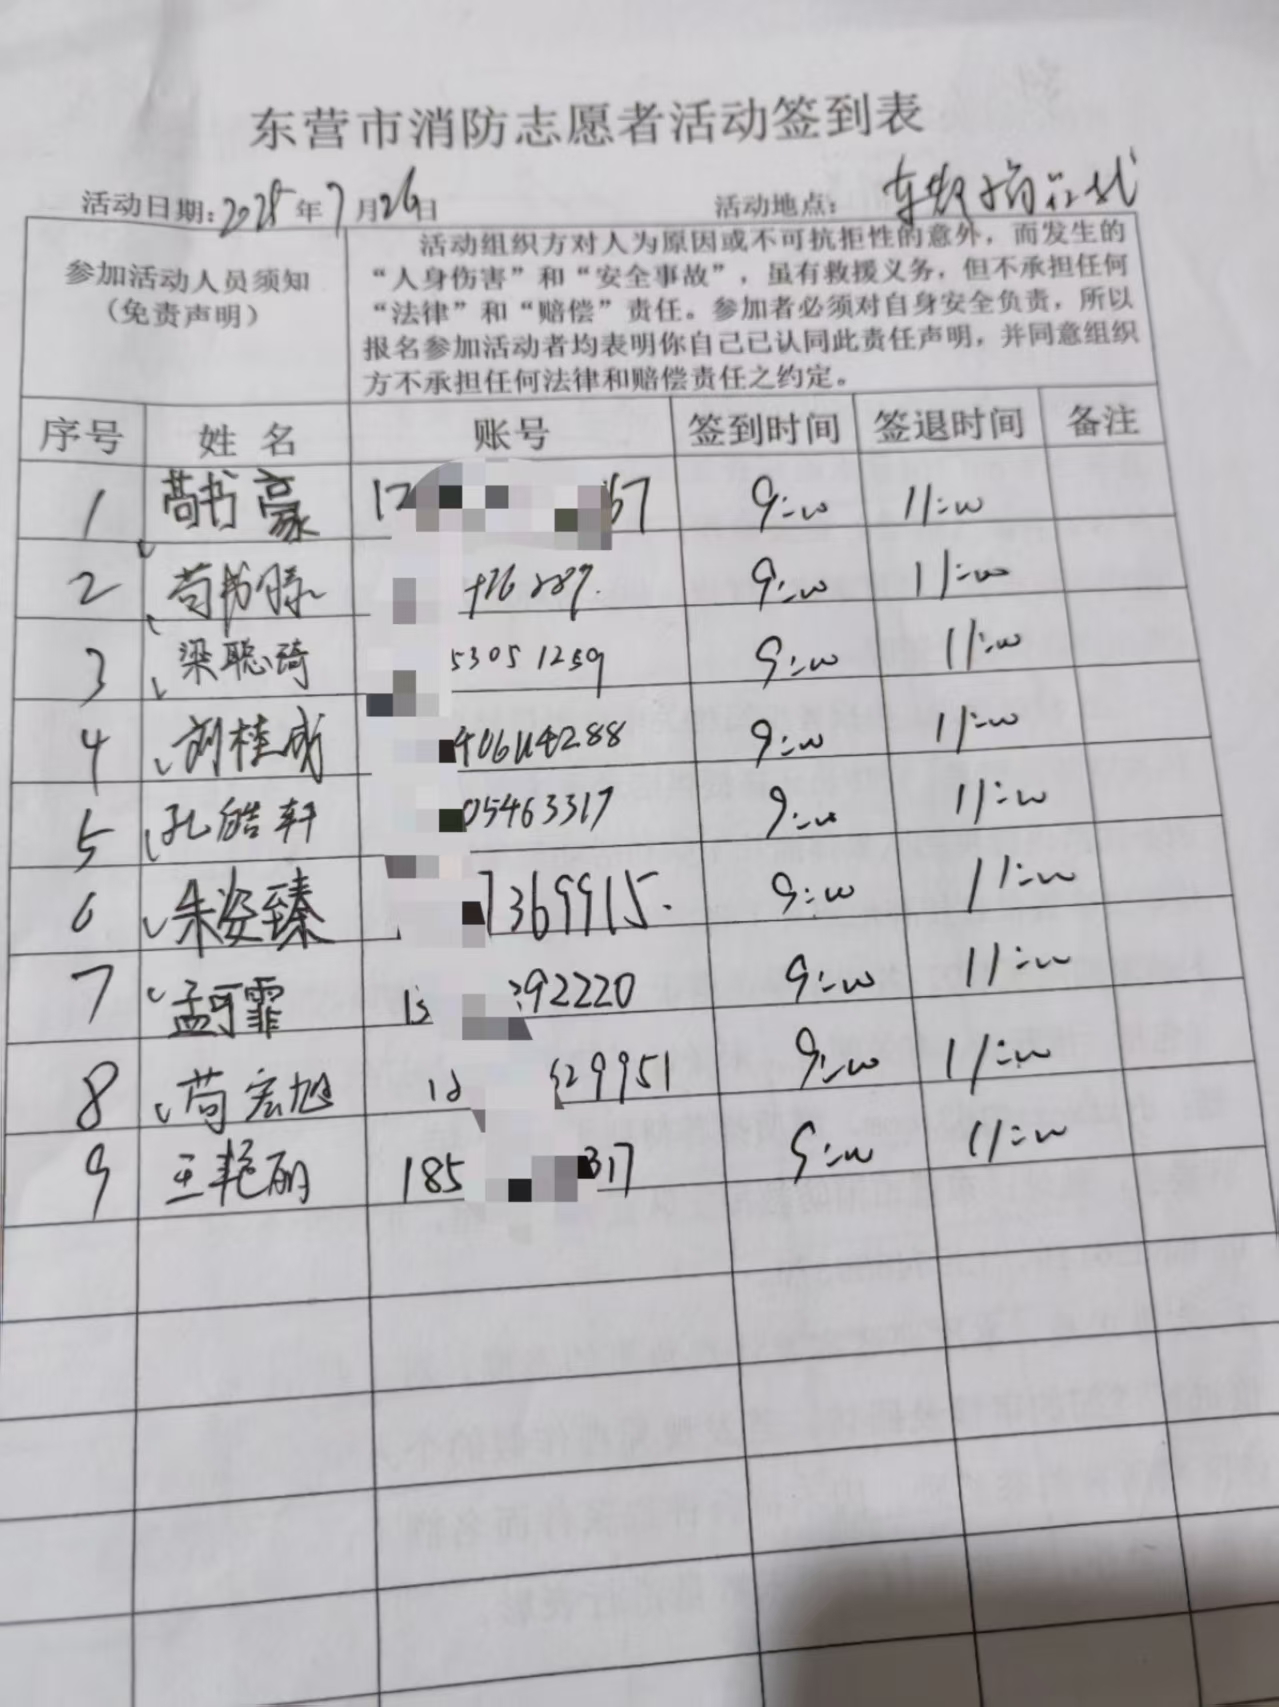 东营市消防志愿者活动签到表
活动日期:2025年7月26日 活动地点:
参加活动人员须知
(免责声明)
活动组织方对人为原因或不可抗拒性的意外，而发生的
“人身伤害”和“安全事故”，虽有救援义务，但不承担任何
“法律”和“赔偿”责任。参加者必须对自身安全负责，所以
报名参加活动者均表明你自己已认同此责任声明，并同意组织
方不承担任何法律和赔偿责任之约定。
序号 姓名 账号 签到时间 签退时间 备注
1 苟书豪 17 67 9:00 11:00
2 苟书滕 9:00 11:00
3 梁聪琦 53051259 9:00 11:00
4 刘桂成 9:00 11:00
5 孔皓轩 05463317 9:00 11:00
6 朱姿臻 7369915. 9:00 11:00
7 孟可霏 92220 9:00 11:00
8 苟宏旭 29951 9:00 11:00
9 王艳丽 185 317 9:00 11:00